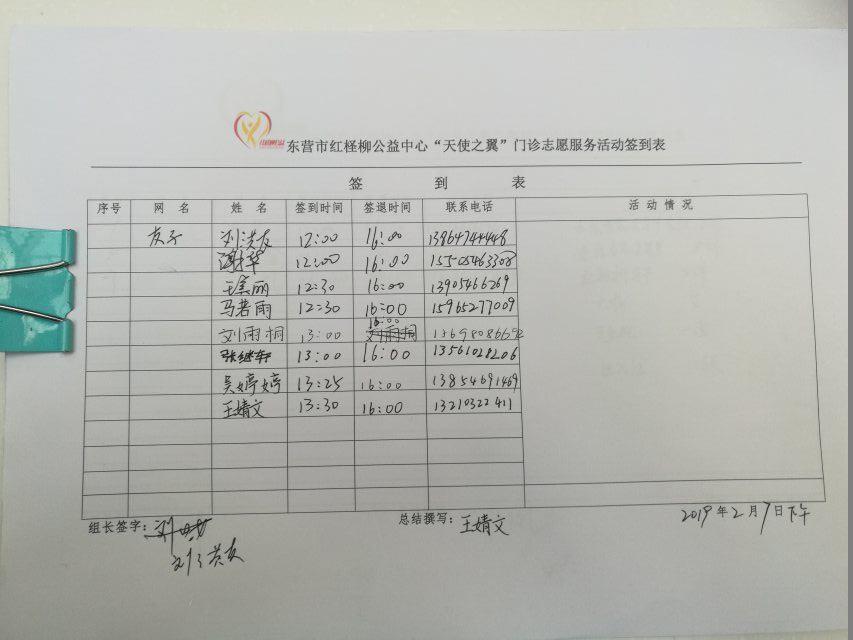 东营市红柽柳公益中心“天使之翼”门诊志愿服务活动签到表
签 到 表
序号 网 名 姓 名 签到时间 签退时间 联系电话 活 动 情 况
友子 刘洪友 12:00 16:00 13864744448
12:00 16:00 15505463308
王美丽 12:30 16:00 13905466269
马若雨 12:30 16:00 15965277009
刘雨桐 13:00 16:00 15698086692
张继轩 13:00 16:00 13561028206
吴婷婷 13:25 16:00 13854691469
王婧文 13:30 16:00 13210322411
组长签字: 总结撰写: 王婧文 2019年2月7日下午
刘洪友